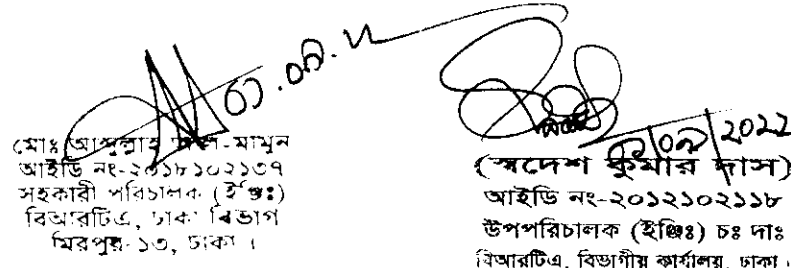 ৩১.০৮.২২
মোঃ আব্দুল্লাহ আল-মামুন
আইডি নং-২০১৮১০২১৩৭
সহকারী পরিচালক (ইঞ্জিঃ)
বিআরটিএ, ঢাকা বিভাগ
মিরপুর-১৩, ঢাকা ।
2022
(স্বদেশ কুমার দাস)
আইডি নং-২০১২১০২১১৮
উপপরিচালক (ইঞ্জিঃ) চঃ দাঃ
বিআরটিএ, বিভাগীয় কার্যালয়, ঢাকা ।